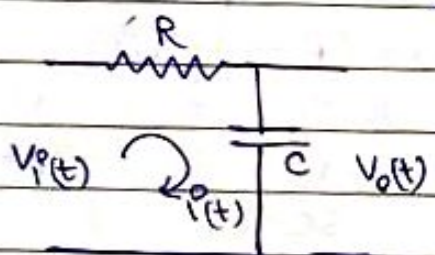 R
Vi(t)
i(t)
C
Vo(t)